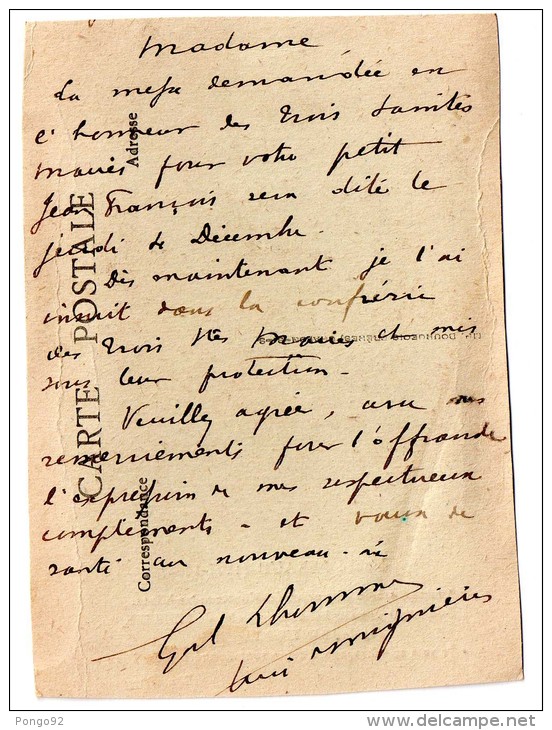 Madame
La messe demandée en
l'honneur des Trois Saintes
Maries pour votre petit
Jean François sera dite le
jeudi de Décembre.
Dès maintenant je l'ai
inscrit dans la confrérie
des Trois Stes Maries et mis
sous leur protection.
Veuillez agréer, avec mes
remerciements pour l'offrande
l'expression de mes respectueux
compliments - et vœux de
santé au nouveau-né
Lhomme
CARTE POSTALE
Correspondance
Adresse
Pongo92
www.delcampe.net